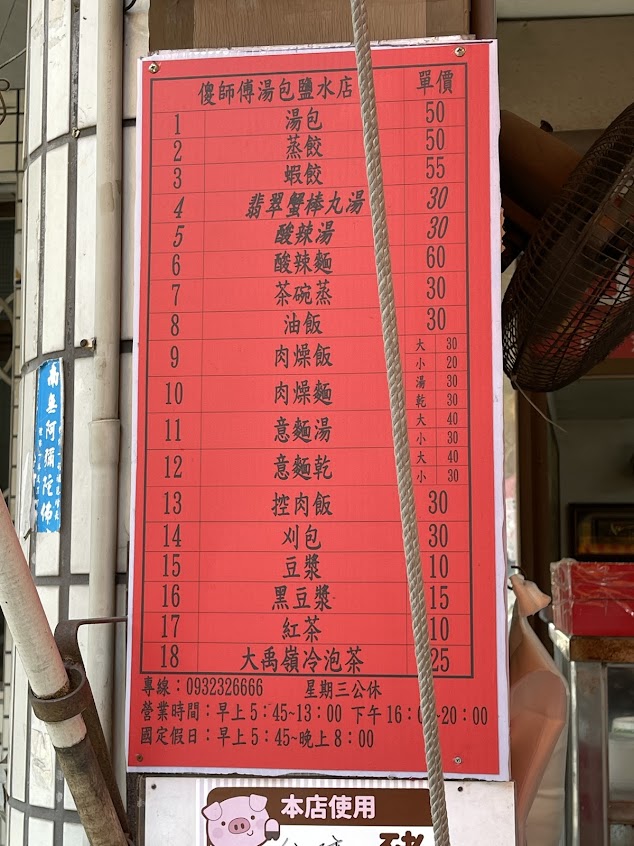 傻師傅湯包鹽水店 單價
1 湯包 50
2 蒸餃 50
3 蝦餃 55
4 翡翠蟹棒丸湯 30
5 酸辣湯 30
6 酸辣麵 60
7 茶碗蒸 30
8 油飯 30
9 肉燥飯 大 30
小 20
10 肉燥麵 湯 30
乾 30
11 意麵湯 大 40
小 30
12 意麵乾 大 40
小 30
13 控肉飯 30
14 刈包 30
15 豆漿 10
16 黑豆漿 15
17 紅茶 10
18 大禹嶺冷泡茶 25
專線：0932326666 星期三公休
營業時間：早上5：45~13：00 下午16：0~20：00
國定假日：早上5：45~晚上8：00
南無阿彌陀佛
本店使用